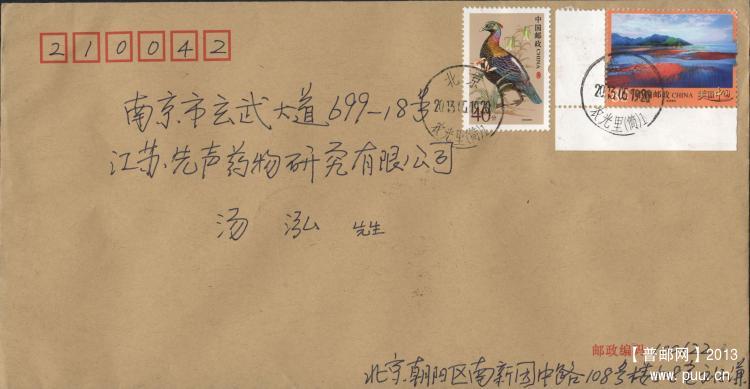 210042
中国邮政 CHINA
40分
北京
2013.05.19.20
农光里(筒)1
中国邮政 CHINA
美丽中国
2013.05.19.20
农光里(筒)1
南京市玄武大道699-18号
江苏先声药物研究有限公司
汤泓 先生
邮政编码
北京朝阳区南新园中路108号楼
【普邮网】2013
www.puu.cn